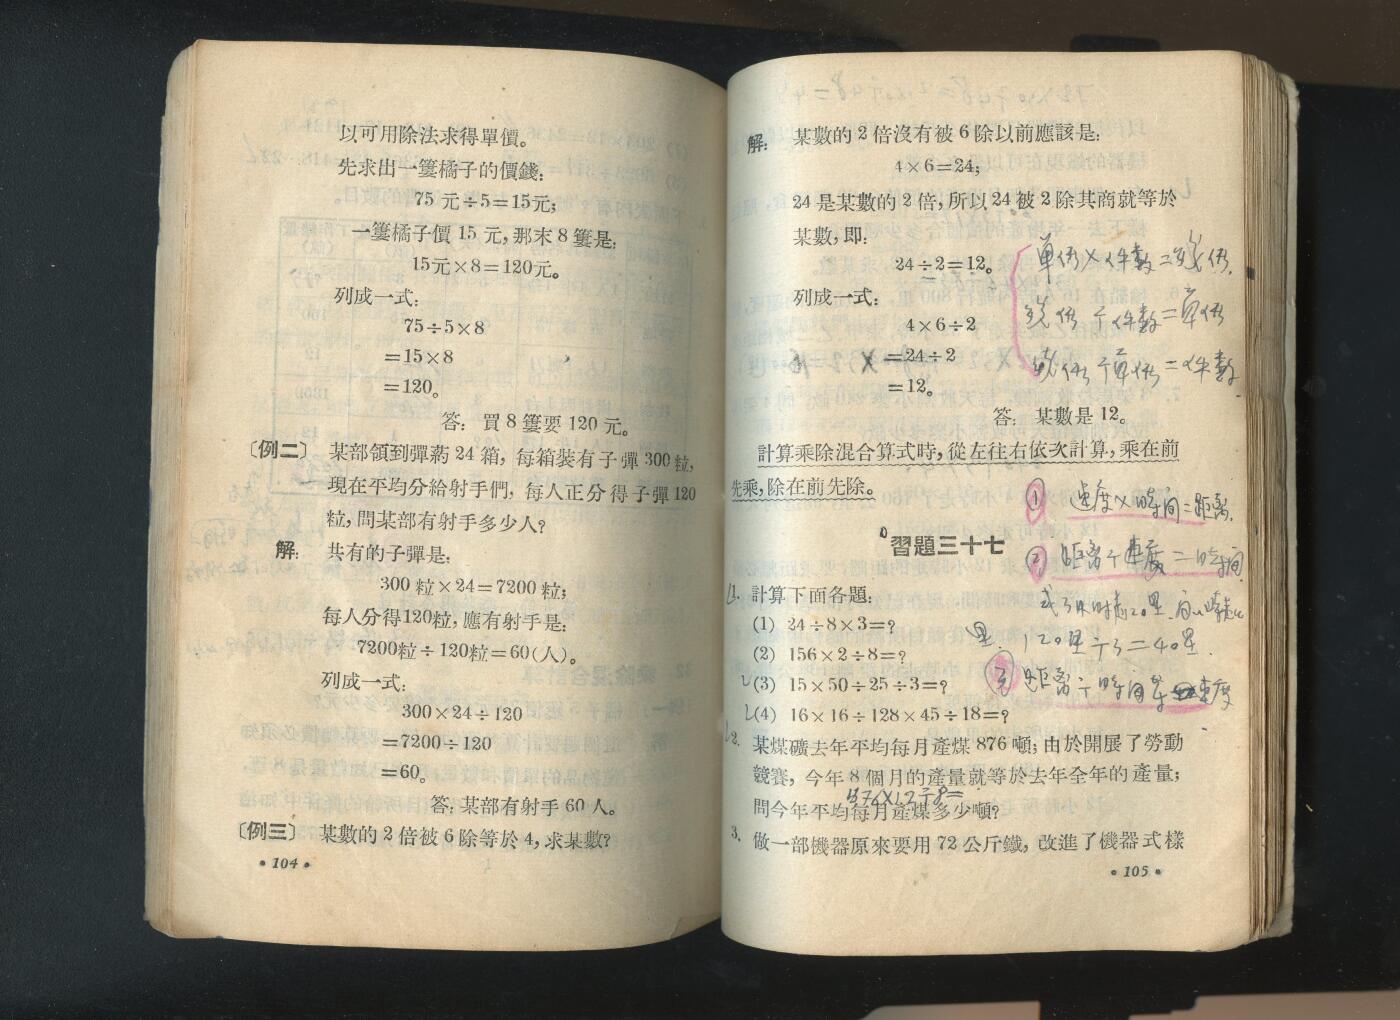 以可用除法求得單價。
先求出一簍橘子的價錢：
75元÷5=15元；
一簍橘子價15元，那末8簍是：
15元×8=120元。
列成一式：
75÷5×8
=15×8
=120。
答：買8簍要120元。
〔例二〕 某部領到彈葯24箱，每箱装有子彈300粒，
現在平均分給射手們，每人正分得子彈120
粒，問某部有射手多少人？
解： 共有的子彈是：
300粒×24=7200粒；
每人分得120粒，應有射手是：
7200粒÷120粒=60(人)。
列成一式：
300×24÷120
=7200÷120
=60。
答：某部有射手60人。
〔例三〕 某數的2倍被6除等於4，求某數？
•104•
解： 某數的2倍沒有被6除以前應該是：
4×6=24；
24是某數的2倍，所以24被2除其商就等於
某數，即：
24÷2=12。
列成一式：
4×6÷2
=24÷2
=12。
答：某數是12。
单価×件数=総価.
総価÷件数=单価
総価÷单価=件数
計算乘除混合算式時，從左往右依次計算，乘在前
先乘，除在前先除。
① 速度×時间=距离.
② 距离÷速度=時间
120里÷3=40里.
③ 距离÷時间=速度
習題三十七
1. 計算下面各題：
(1) 24÷8×3=？
(2) 156×2÷8=？
(3) 15×50÷25÷3=？
(4) 16×16÷128×45÷18=？
2. 某煤礦去年平均每月產煤876噸；由於開展了勞動
競賽，今年8個月的產量就等於去年全年的產量；
876×12÷8=
問今年平均每月產煤多少噸？
3. 做一部機器原來要用72公斤鐵，改進了機器式樣
•105•